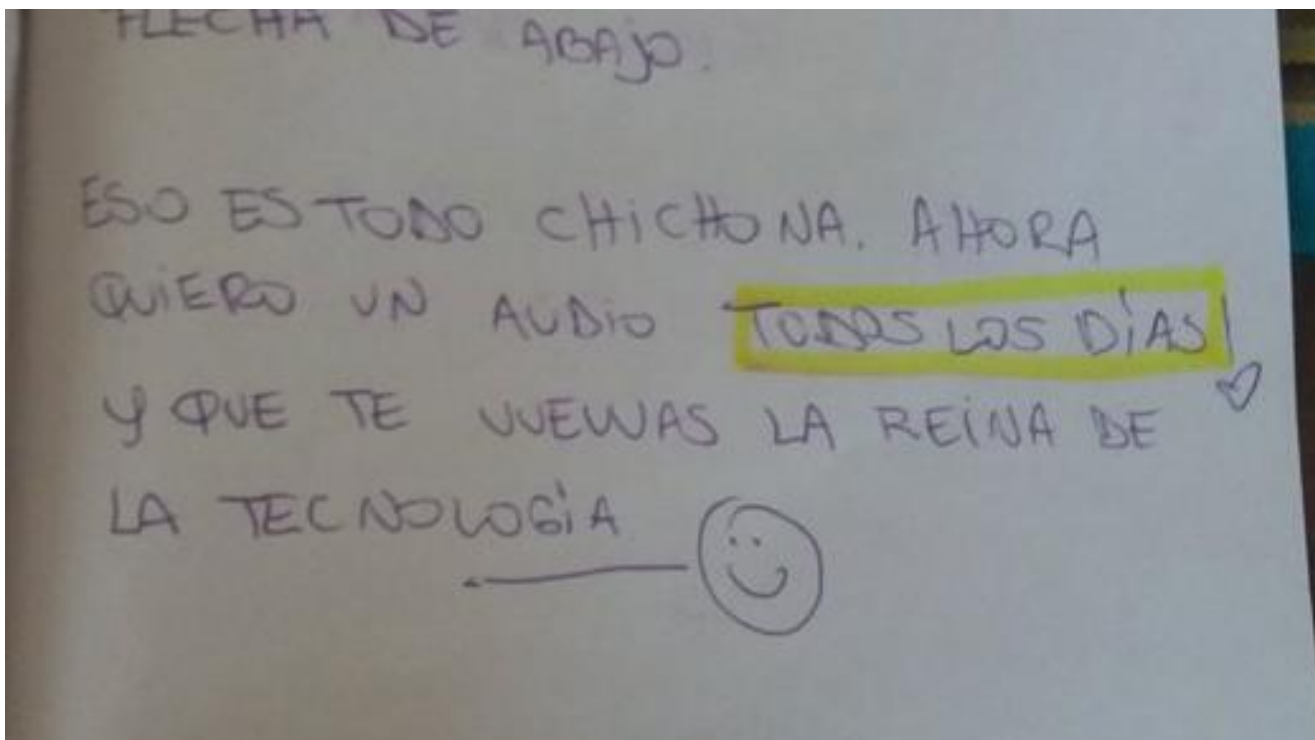 FLECHA DE ABAJO.
ESO ES TODO CHICHONA. AHORA
QUIERO UN AUDIO TODOS LOS DÍAS
Y QUE TE VUELVAS LA REINA DE
LA TECNOLOGÍA